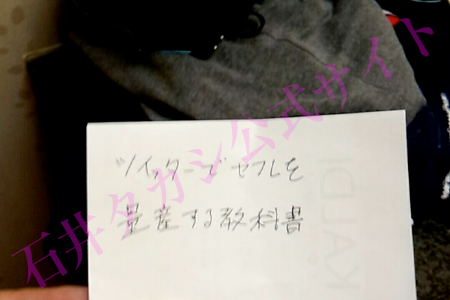 石井タカシ公式サイト
ツイッターでセフレを
量産する教科書
KALDI